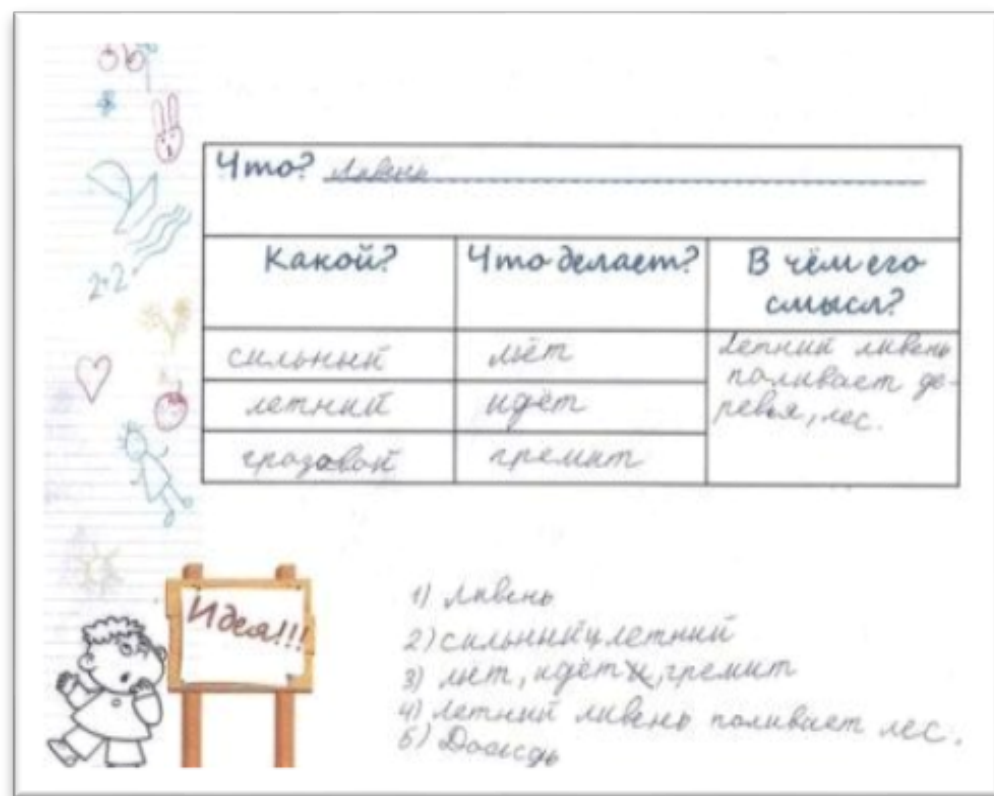 Что? Ливень
Какой? Что делает? В чём его
смысл?
сильный льёт Летний ливень
поливает де-
летний идёт ревья, лес.
грозовой гремит
Идея!!!
1) Ливень
2) сильный, летний
3) льёт, идёт и, гремит
4) Летний ливень поливает лес.
5) Дождь
2+2